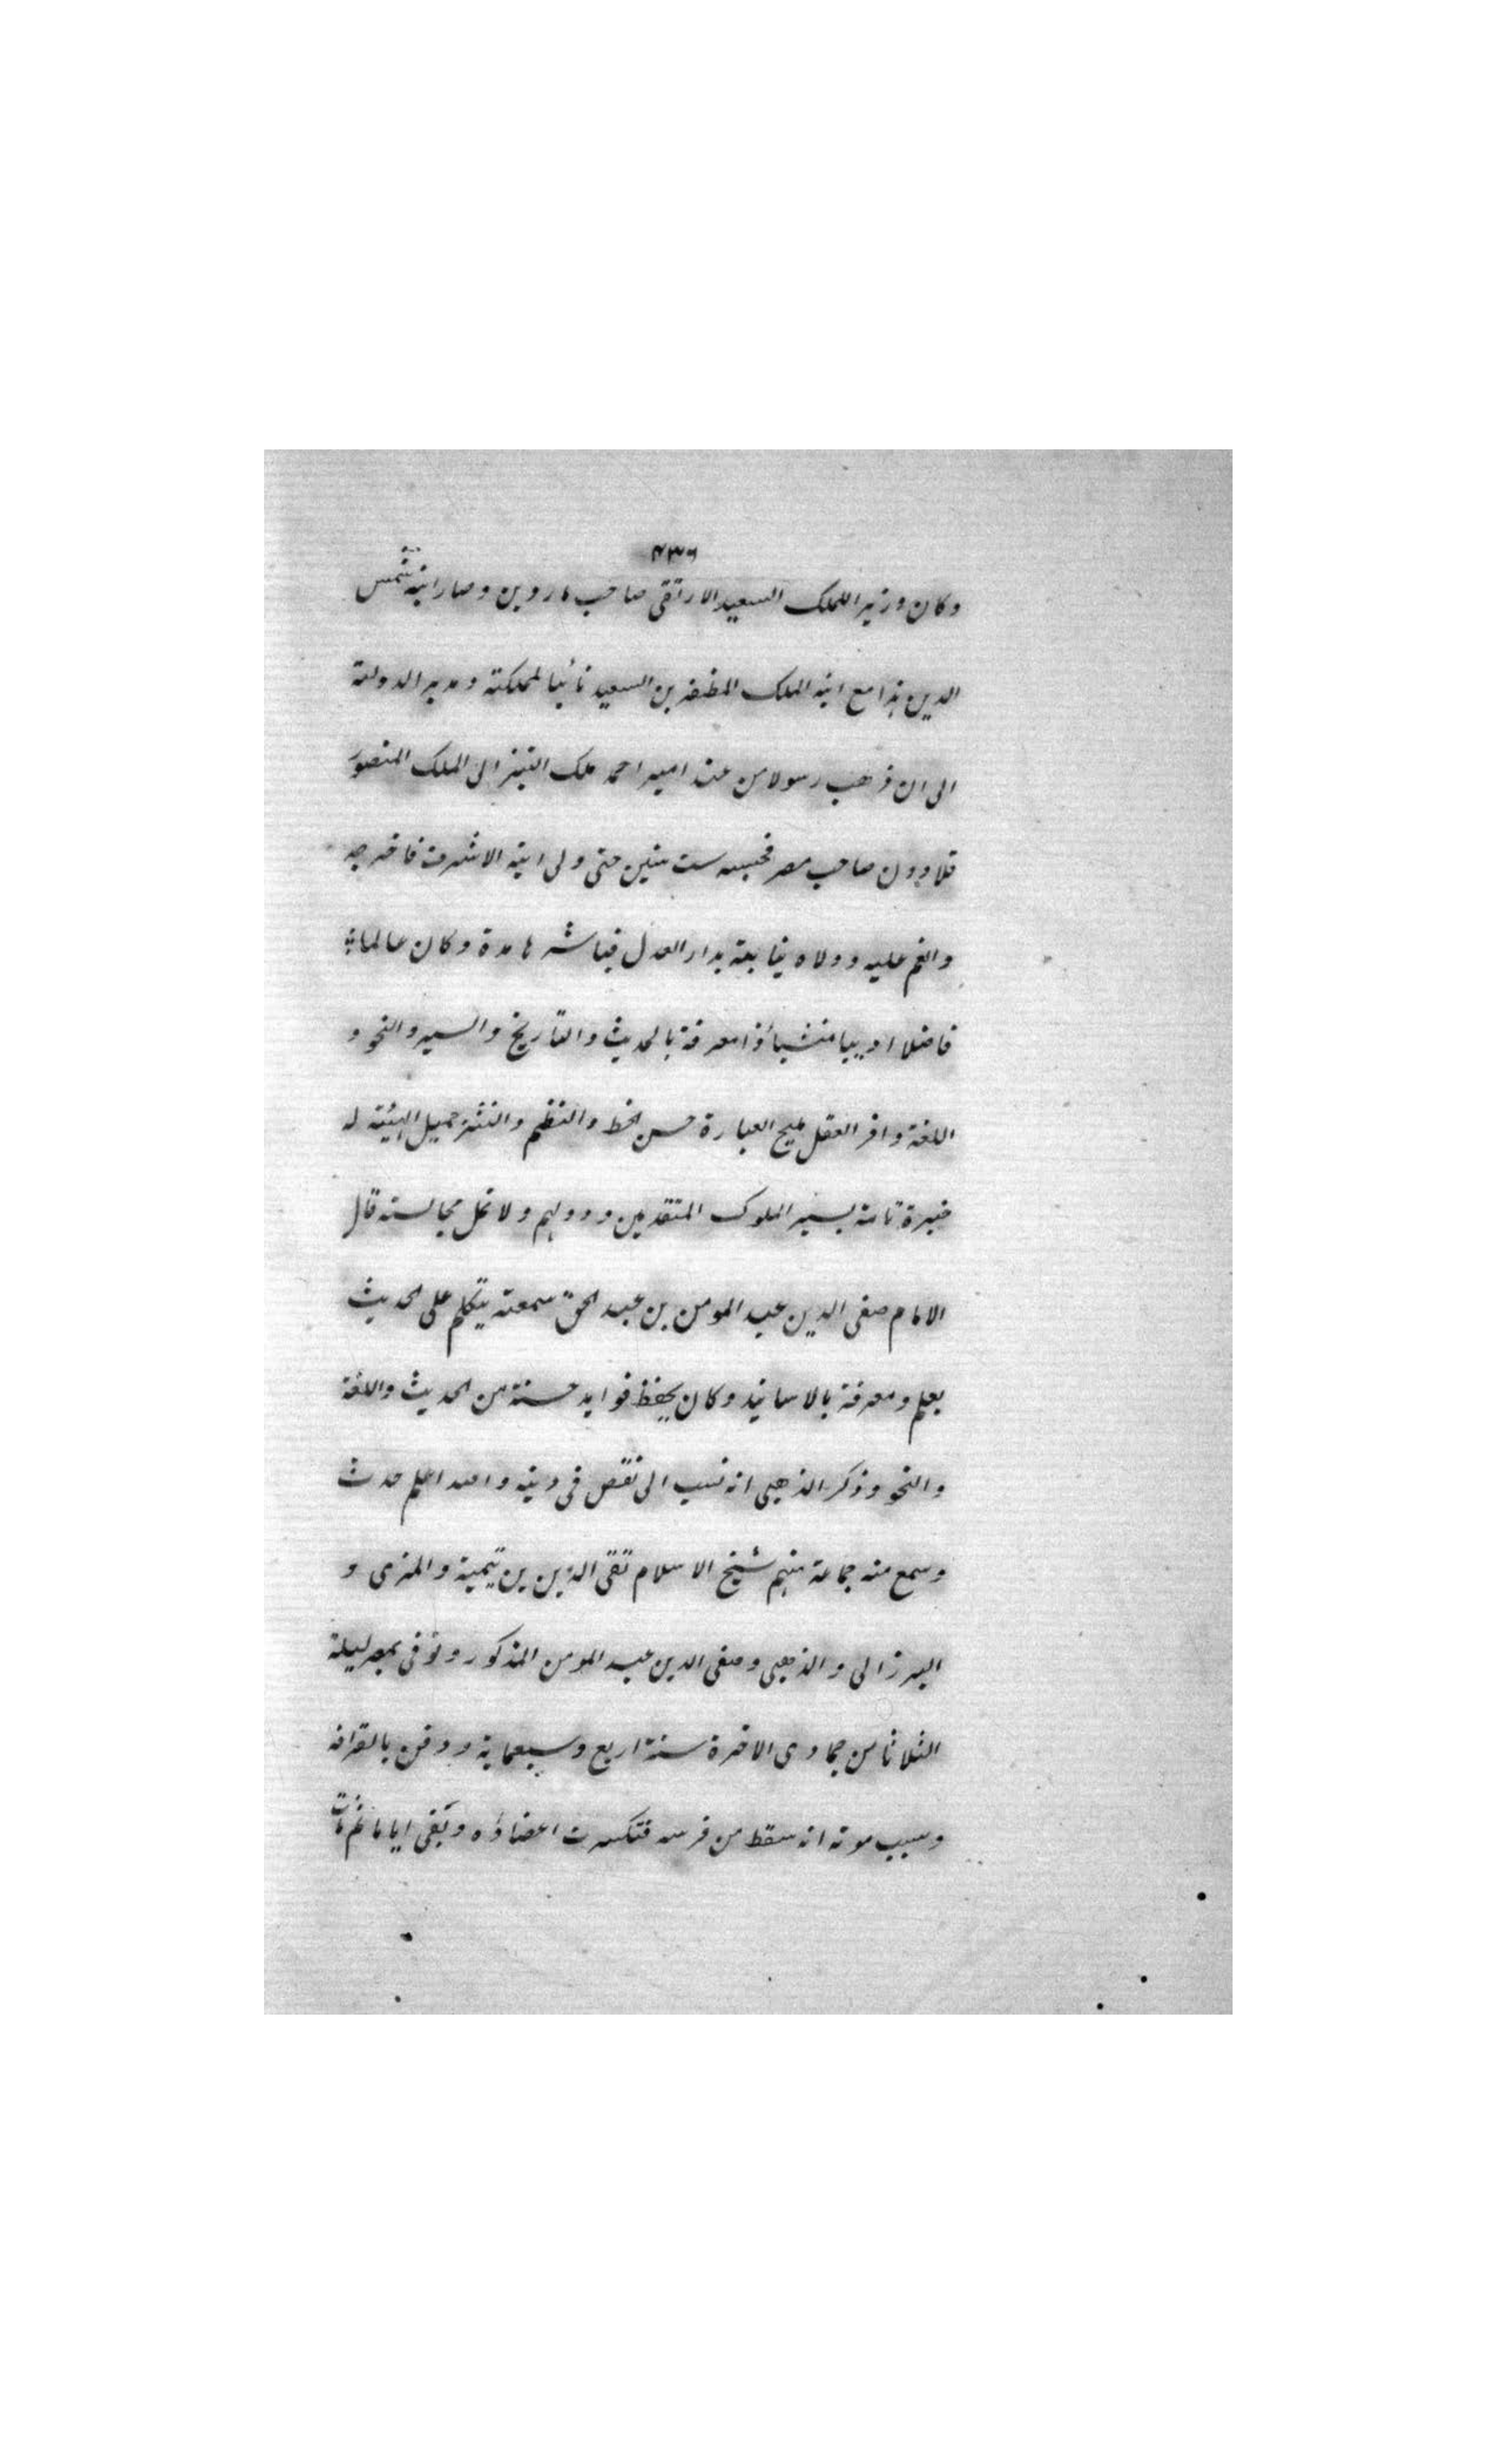 ٤٣٦
وكان وزير الملك السعيد الارتقى صاحب ماردين وصار ابنه شمس
الدين هذا مع ابنه الملك المظفر بن السعيد نائبا لمملكته ومدبر الدولته
الى ان ذهب رسولا من عند امير احمد ملك التتر الى الملك المنصور
قلاوون صاحب مصر فحبسه ست سنين حتى ولى ابنه الاشرف فاخرجه
وانعم عليه وولاه نيابة بدار العدل فباشرها مدة وكان عالما
فاضلا اديبا منشيأ ذا معرفة بالحديث والتاريخ والسير والنحو و
اللغة وافر العقل مليح العبارة حسن الخط والنظم والنثر جميل الهيئة له
خبرة تامة بسير الملوك المتقدمين ودولهم ولا تمل مجالسته قال
الامام صفى الدين عبد المومن بن عبد الحق سمعته يتكلم على الحديث
بعلم ومعرفة بالاسانيد وكان يحفظ فوايد حسنة من الحديث واللغة
والنحو وذكر الذهبى انه نسب الى نقص فى دينه والله اعلم حدث
وسمع منه جماعة منهم شيخ الاسلام تقى الدين بن تيمية والمزى و
البرزالى والذهبى وصفى الدين عبد المومن المذكور وتوفى بمصر ليلة
الثلاثا من جمادى الاخرة سنة اربع وسبعماية ودفن بالقرافه
وسبب موته انه سقط من فرسه فتكسرت اعضاؤه وبقى اياما ثم مات